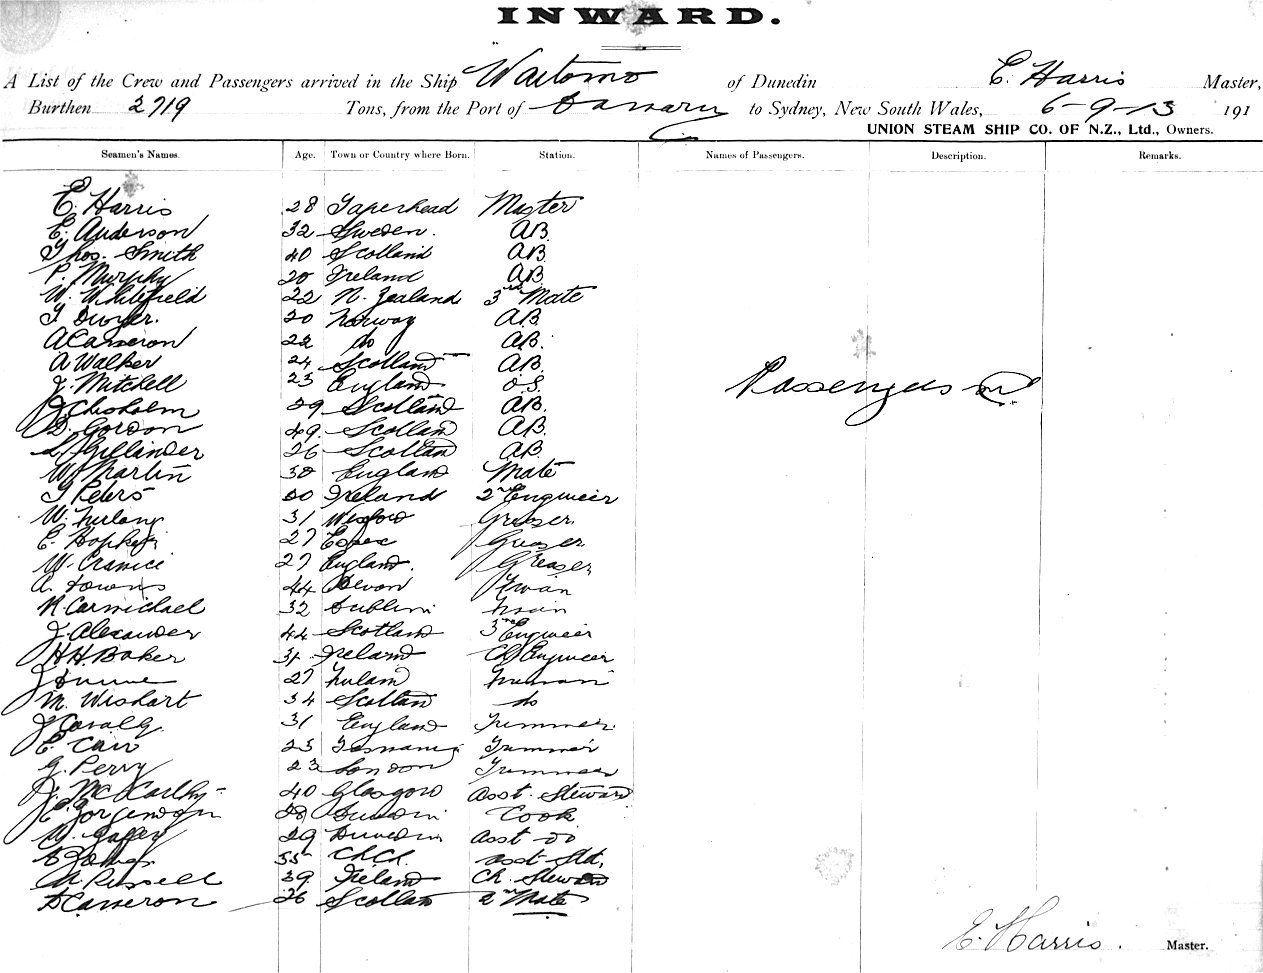 INWARD.
A List of the Crew and Passengers arrived in the Ship Waitomo of Dunedin E. Harris Master,
Burthen 2719 Tons, from the Port of to Sydney, New South Wales, 6-9-13 191
UNION STEAM SHIP CO. OF N.Z., Ltd., Owners.
Seamen's Names. Age. Town or Country where Born. Station. Names of Passengers. Description. Remarks.
E. Harris 28 Master
E. Anderson 32 Sweden. AB
Thos. Smith 40 Scotland AB
P. Murphy 20 Ireland AB
W. Whitefield 22 N. Zealand 3rd Mate
T. Dwyer. 20 Norway AB.
A Cameron 22 do AB.
A Walker 24 Scotland AB.
J. Mitchell 23 England O.S.
Passengers nil
J. Chisholm 29 Scotland AB.
D. Gordon 49. Scotland AB.
Gillander 26 Scotland AB
W. Martin 30 England Mate
T Peters Ireland 2nd Engineer
W. Furlong 31 Wexford Greaser.
E. 27 Essex Greaser
W. 27 England. Greaser
A. Downs 44 Devon
R. Carmichael 32 Dublin
J. Alexander 44 Scotland 3rd Engineer
H H. Baker 31 Ireland Ch Engineer
J Dunne 27 Fireman
M. Wishart 34 Scotland do
J 31 England Trimmer
E. Carr 23 Tasmania Trimmer
G. Perry 23 London Trimmer
J. McCarthy 40 Glasgow Asst. Steward
E. Jorgendsen 28 Dunedin Cook
W. 29 Dunedin Asst do
James 55 ChCh. Asst Std.
A Russell 39 Ireland Ch. Steward
D Cameron 26 Scotland 2nd Mate
E. Harris. Master.